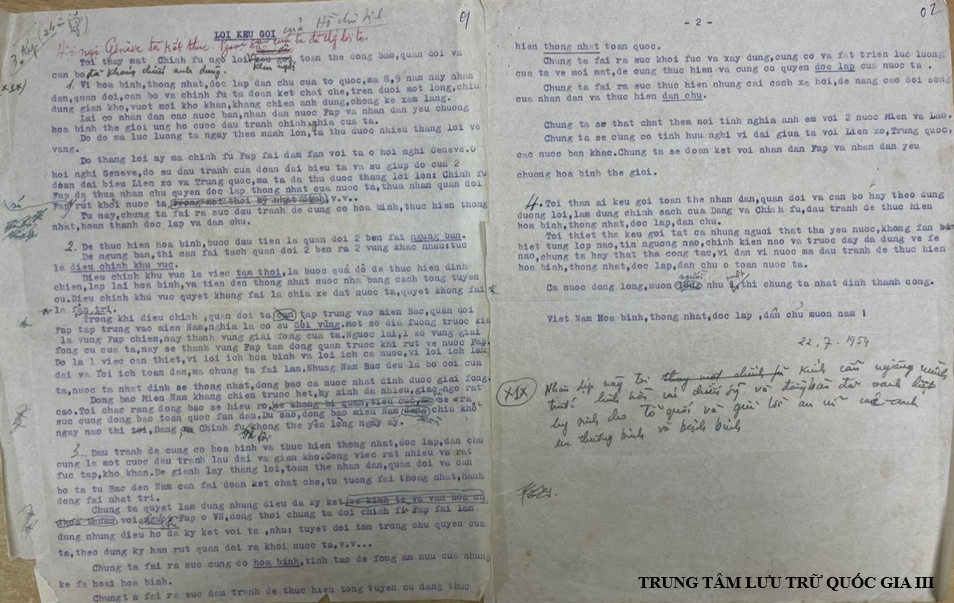 01
LOI KEU GOI của Hồ chủ tịch
Hội nghị Genève đã kết thúc. Ngoại giao của ta đã thắng lợi to.
Toi thay mat Chinh fu ngo loi toan the dong bao, quan doi va
can bo
1. Vi hoa binh, thong nhat, doc lap dan chu cua to quoc, ma 8,9 nam nay nhan
dan, quan doi, can bo va chinh fu ta doan ket chat che, tren duoi mot long, chiu
dung gian kho, vuot moi kho khan, khang chien anh dung, chong ke xam lang.
Lai co nhan dan cac nuoc ban, nhan dan nuoc Fap va nhan dan yeu chuong
hoa binh the gioi ung ho cuoc dau tranh chinh nghia cua ta.
Do do ma luc luong ta ngay them manh lon, ta thu duoc nhieu thang loi ve
vang.
Do thang loi ay ma chinh fu Fap fai dam fan voi ta o hoi nghi Geneve. O
hoi nghi Geneve, do su dau tranh cua doan dai bieu ta va su giup do cua 2
doan dai bieu Lien xo va Trung quoc, ma ta da thu duoc thang loi lon: Chinh fu
Fap da thua nhan chu quyen doc lap thong nhat cua nuoc ta, thua nhan quan doi
Fap rut khoi nuoc ta trong mot thoi ky nhat dinh, v.v..
Tu nay, chung ta fai ra suc dau tranh de cung co hoa binh, thuc hien thong
nhat, hoan thanh doc lap va dan chu.
2. De thuc hien hoa binh, buoc dau tien la quan doi 2 ben fai ngung ban.
De ngung ban, thi can fai tach quan doi 2 ben ra 2 vung khac nhau: tuc
la dieu chinh khu vuc.
Dieu chinh khu vuc la viec tam thoi, la buoc quá độ de thuc hien dinh
chien, lap lai hoa binh, va tien den thong nhat nuoc nha bang cach tong tuyen
cu. Dieu chinh khu vuc quyet khong fai la chia xe dat nuoc ta, quyet khong fai
la fân tri.
Trong khi dieu chinh, quan doi ta tap trung vao mien Bac, quan doi
Fap tap trung vao mien Nam, nghia la co su dôi vùng. Mot so dia fuong truoc kia
la vung Fap chien, nay thanh vung giai fong cua ta. Nguoc lai, 1 so vung giai
fong cu cua ta, nay se thanh vung Fap tam dong quan truoc khi rut ve nuoc Fap.
Do la 1 viec can thiet, vi loi ich hoa binh va loi ich ca nuoc, vi loi ich lau
dai va loi ich toan dan, ma chung ta fai lam. Nhung Nam Bac deu la bo coi cua
ta, nuoc ta nhat dinh se thong nhat, dong bao ca nuoc nhat dinh duoc giai fong.
Dong bao Mien Nam khang chien truoc het, hy sinh da nhieu, giac ngo rat
cao. Toi chac rang dong bao se hieu ro, se khong bi quan, tieu cuc ra
suc cung dong bao toan quoc fan dau. Du sao, dong bao mien Nam dang chiu khổ
ngay nao thi Dang Chinh fu khong the yên long ngay ay.
3. Dau tranh de cung co hoa binh va thuc hien thong nhat, doc lap, dan chu
cung la mot cuoc dau tranh lau dai va gian kho. Cong viec rat nhieu va rat
fuc tap, kho khan. De gianh lay thang loi, toan the nhan dan, quan doi va can
bo ta tu Bac den Nam can fai doan ket chat che, tu tuong fai thong nhat, hành
dong fai nhat tri.
Chung ta quyet lam dung nhung dieu da ky ket ve kinh te va van hoa
voi Fap o VN, dong thoi chung ta doi chinh fu Fap fai lam
dung nhung dieu ho da ky ket voi ta, nhu: tuyet doi ton trong chu quyen cua
ta, theo dung ky han rut quan doi ra khoi nuoc ta, v.v...
Chung ta fai ra suc cung co hoa binh, tinh tao de fong am muu cua nhung
ke fa hoai hoa binh.
Chung ta fai ra suc dau tranh de thuc hien tong tuyen cu dang thuc
02
- 2 -
hien thong nhat toan quoc.
Chung ta fai ra suc khoi fuc va xay dung, cung co va fat trien luc luong
cua ta ve moi mat, de cung thuc hien va cung co quyen doc lap cua nuoc ta.
Chung ta fai ra suc thuc hien nhung cai cach xa hoi, de nang cao doi song
cua nhan dan va thuc hien dan chu.
Chung ta se that chat them moi tinh nghia anh em voi 2 nuoc Mien va Lao.
Chung ta se cung co tinh huu nghi vi dai giua ta voi Lien xo, Trung quoc,
cac nuoc ban khac. Chung ta se doan ket voi nhan dan Fap va nhan dan yeu
chuong hoa binh the gioi.
4. Toi than ai keu goi toan the nhan dan, quan doi va can bo hay theo dung
duong loi, lam dung chinh sach cua Dang va Chinh fu, dau tranh de thuc hien
hoa binh, thong nhat, doc lap, dan chu.
Toi thiet tha keu goi tat ca nhung nguoi that tha yeu nuoc, khong fan
biet tung lop nao, tin nguong nao, chinh kien nao va truoc day da dung ve fe
nao, chung ta hay that tha cong tac, vi dan vi nuoc ma dau tranh de thuc hien
hoa binh, thong nhat, doc lap, dan chu o toan nuoc ta.
Ca nuoc dong long, muon người nhu một, thi chung ta nhat dinh thanh cong.
Viet Nam Hoa binh, thong nhat, doc lap, dân chủ muon nam!
22.7.1954
x1x
Nhân dịp này tôi thay mặt chính fủ kính cẩn nghiêng mình
trước linh hồn các chiến sỹ và đồng bào đã oanh liệt
hy sinh cho Tổ quốc và gửi lời an ủi các anh
em thương binh và bệnh binh
TRUNG TÂM LƯU TRỮ QUỐC GIA III